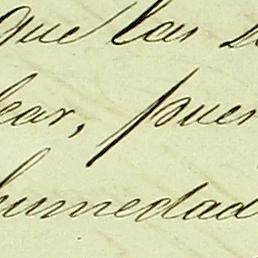 que las
ear, pues
humedad